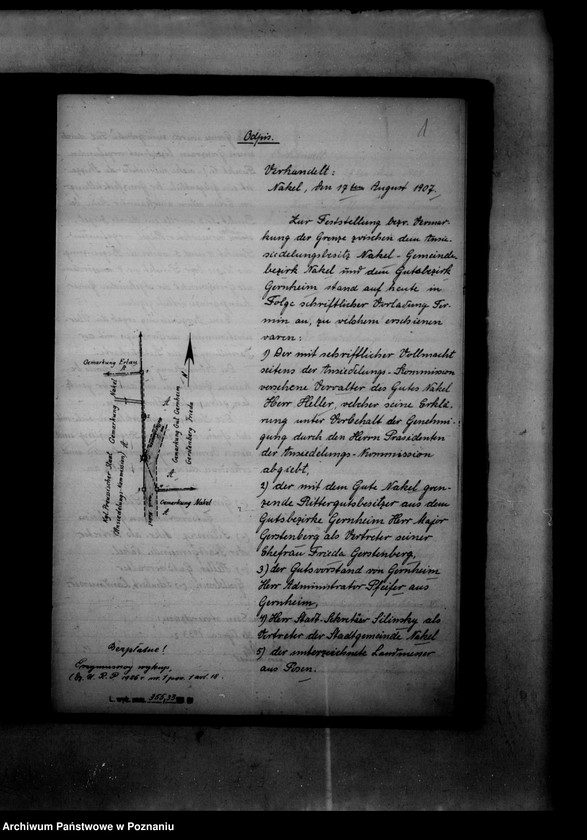 1
Odpis.
Verhandelt:
Nakel, den 17ten August 1907.
Zur Feststellung bezw. Vermar-
kung der Grenze zwischen dem Ansie-
siedelungsbesitz Nakel - Gemeinde-
bezirk Nakel und dem Gutsbezirk
Gernheim stand auf heute in
Folge schriftlicher Vorladung Ter-
min an, zu welchem erschienen
waren:
1) Der mit schriftlicher Vollmacht
seitens der Ansiedelungs-Kommission
versehene Verwalter des Gutes Nakel
Herr Heller, welcher seine Erklä-
rung unter Vorbehalt der Genehmi-
gung durch den Herrn Präsidenten
der Ansiedelungs-Kommission
abgiebt,
2) der mit dem Gute Nakel gren-
zende Rittergutsbesitzer aus dem
Gutsbezirke Gernheim Herr Major
Gerstenberg als Vertreter seiner
Ehefrau Frieda Gerstenberg,
3) der Gutsvorstand von Gernheim
Herr Administrator Pfeifer aus
Gernheim,
4) Herr Stadt-Sekretär Silinsky als
Vertreter der Stadtgemeinde Nakel
5) der unterzeichnete Landmesser
aus Posen.
Gemarkung Erlau
Gemarkung Nakel
Kgl. Preussischer Staat
(Ansiedelungs-Kommission)
Gemarkung Gut Gernheim
Gerstenberg Frieda
Gemarkung Nakel
N
Bezpłatne!
L. wyk.
Archiwum Państwowe w Poznaniu